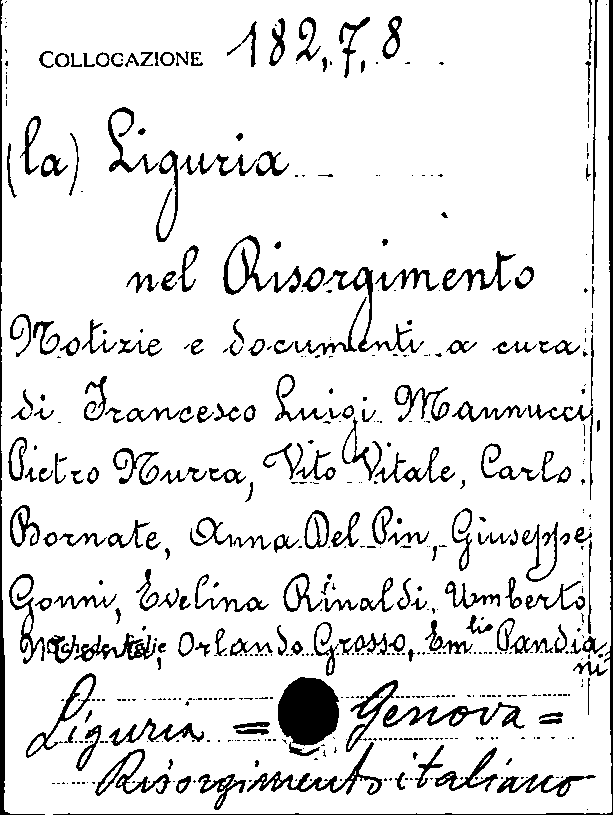 COLLOCAZIONE 182,7,8
(la) Liguria
nel Risorgimento
Notizie e documenti a cura
di Francesco Luigi Mannucci,
Pietro Nurra, Vito Vitale, Carlo
Bornate, Anna Del Pin, Giuseppe
Gonni, Evelina Rinaldi, Umberto
Orlando Grosso, Em lio Pandia
ni
Liguria = Genova =
Risorgimento italiano